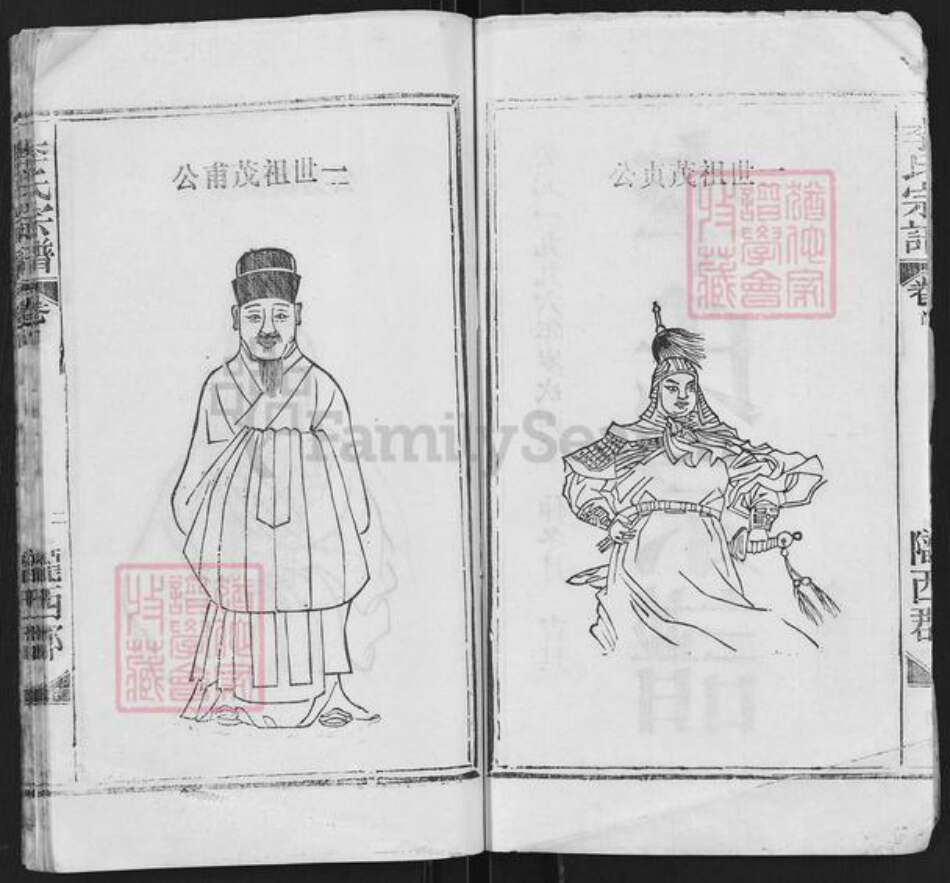 一世祖茂贞公
李氏宗譜
卷首
隴西郡
猶他家
譜學會
收藏
二世祖茂甫公
李氏宗譜
卷首
二
隴西郡
猶他家
譜學會
收藏
FamilySe